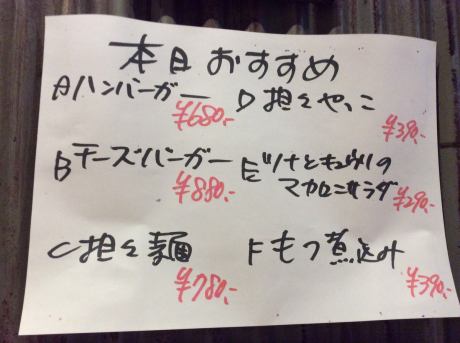 本日おすすめ
Aハンバーガー
¥680.-
Bチーズバーガー
¥880.-
C担々麺
¥780.-
D担々やっこ
¥390.-
Eツナとキュウリの
マカロニサラダ
¥290.-
Fもつ煮込み
¥390.-